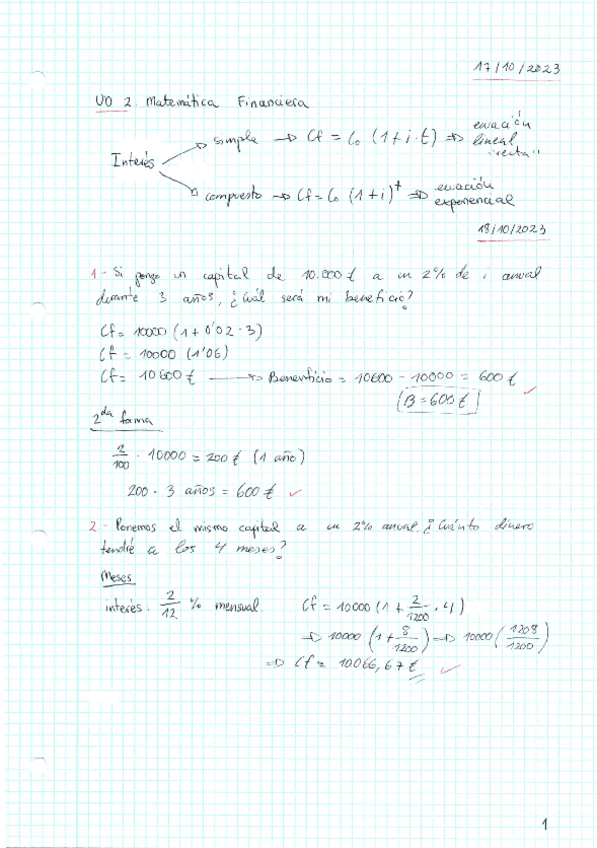 17/10/2023
UD 2. Matemática Financiera
Interés
simple → Cf = Co (1+i·t) ⇒ ecuación lineal "recta"
compuesto → Cf = Co (1+i)^t ⇒ ecuación exponencial
18/10/2023
1.- Si pongo un capital de 10.000 € a un 2% de i anual
durante 3 años, ¿Cuál será mi beneficio?
Cf = 10000 (1+0'02·3)
Cf = 10000 (1'06)
Cf = 10600 € → Benenficio = 10600 - 10000 = 600 €
B = 600 €
2da forma
2/100 · 10000 = 200 € (1 año)
200 · 3 años = 600 € ✓
2.- Ponemos el mismo capital a un 2% anual. ¿Cuánto dinero
tendré a los 4 meses?
Meses
interés. 2/12 % mensual Cf = 10000 (1 + 2/1200 · 4)
⇒ 10000 (1 + 8/1200) ⇒ 10000 (1208/1200)
⇒ Cf = 10066,67 € ✓
1